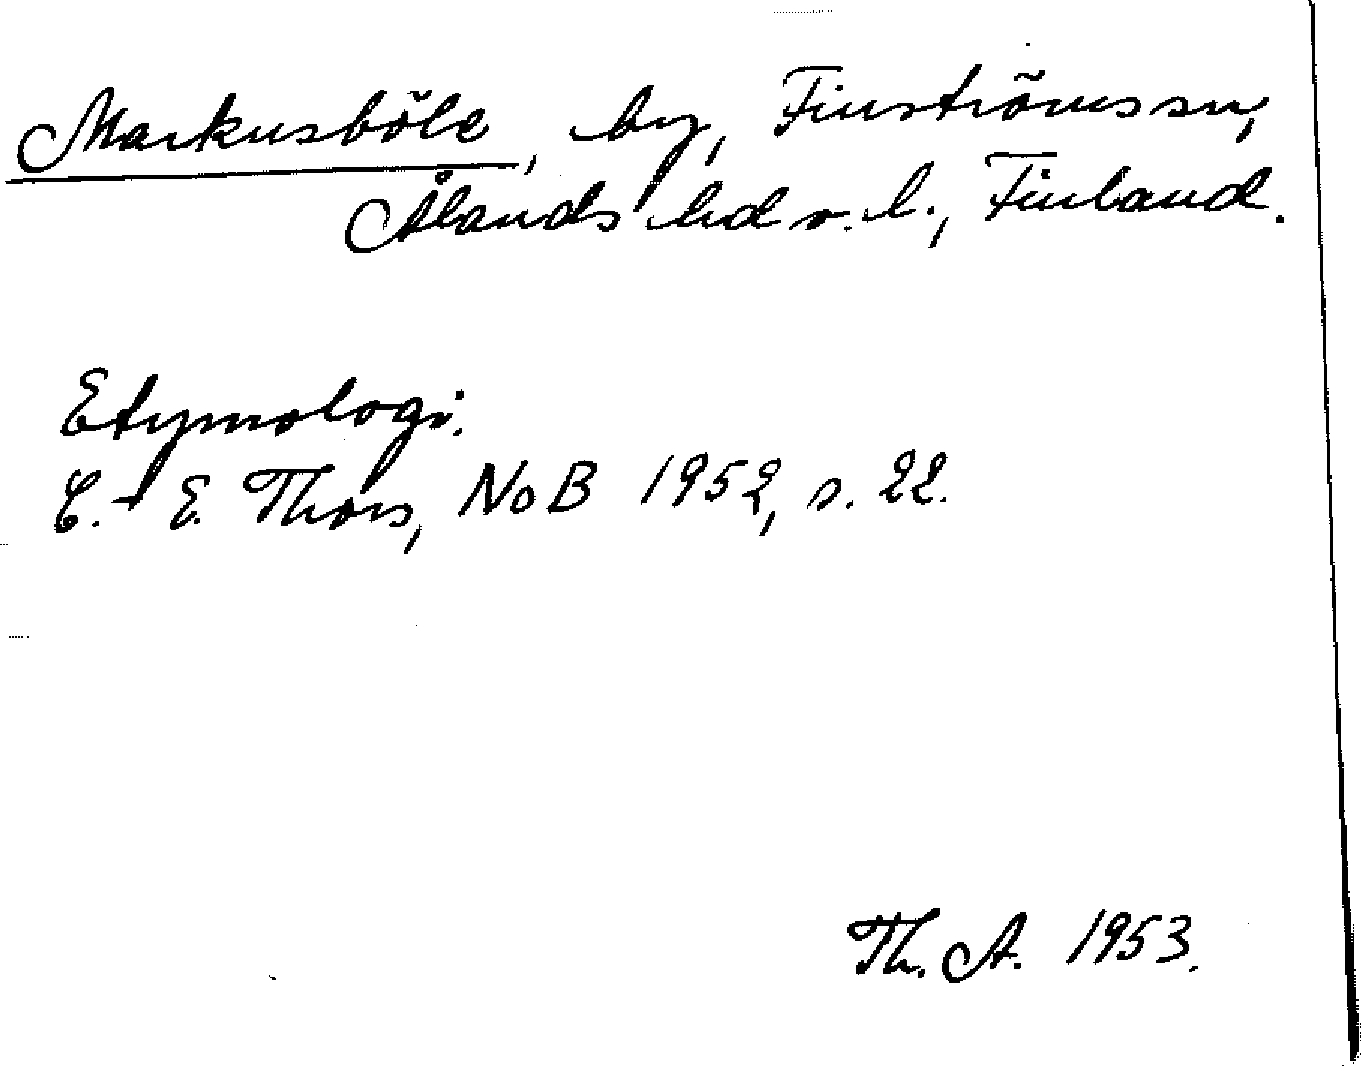 Markusböle, by, Finströms sn,
Ålands hd o. l., Finland.
Etymologi.
C.-E. Thors, NoB 1952, s. 22.
Th. A. 1953.